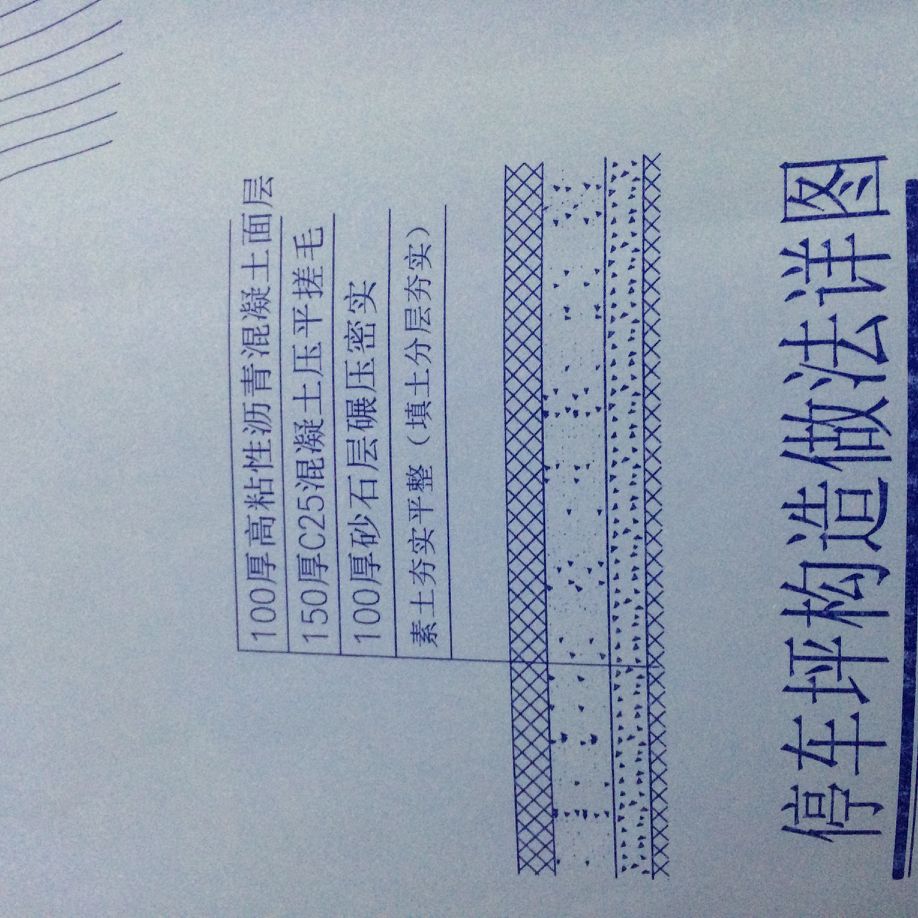 100厚高粘性沥青混凝土面层
150厚C25混凝土压平搓毛
100厚砂石层碾压密实
素土夯实平整（填土分层夯实）
停车坪构造做法详图